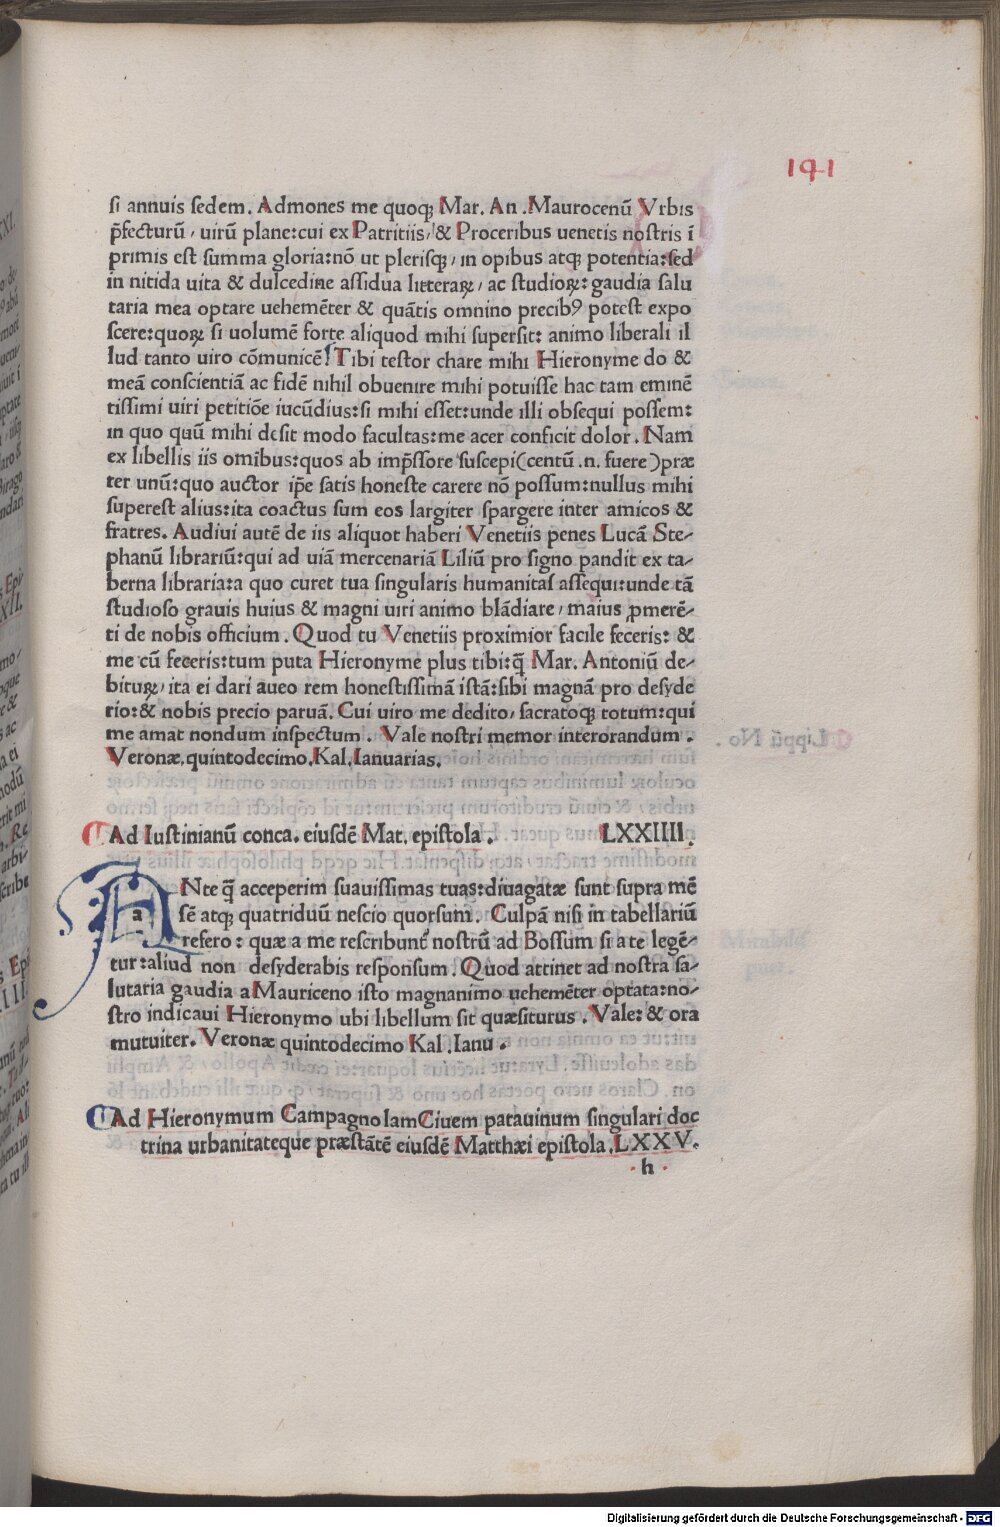 141
si annuis sedem. Admones me quoqꝫ Mar. An .Maurocenū Vrbis
p̄fecturū, uirū plane:cui ex Patritiis, & Proceribus uenetis nostris ī
primis est summa gloria:nō ut plerisqꝫ, in opibus atqꝫ potentia:sed
in nitida uita & dulcedine assidua litteraꝝ, ac studioꝝ: gaudia salu
taria mea optare uehemēter & quātis omnino precibꝰ potest expo
scere:quoꝝ si uolumē forte aliquod mihi supersit: animo liberali il
lud tanto uiro cōmunicē! Tibi testor chare mihi Hieronyme do &
meā conscientiā ac fidē nihil obuenire mihi potuisse hac tam eminē
tissimi uiri petitiōe iucūdius:si mihi esset:unde illi obsequi possem:
in quo quū mihi desit modo facultas:me acer conficit dolor. Nam
ex libellis iis omībus:quos ab imp̄ssore suscepi(centū .n. fuere)præ
ter unū:quo auctor ip̄e satis honeste carere nō possum:nullus mihi
superest alius:ita coactus sum eos largiter spargere inter amicos &
fratres. Audiui autē de iis aliquot haberi Venetiis penes Lucā Ste-
phanū librariū:qui ad uiā mercenariā Liliū pro signo pandit ex ta-
berna libraria:a quo curet tua singularis humanitas assequi:unde tā
studioso grauis huius & magni uiri animo blādiare, maius ꝓmerē-
ti de nobis officium. Quod tu Venetiis proximior facile feceris: &
me cū feceris:tum puta Hieronyme plus tibi:q̄ Mar. Antoniū de-
bituꝝ, ita ei dari aueo rem honestissimā istā:sibi magnā pro desyde
rio:& nobis precio paruā. Cui uiro me dedito, sacratoqꝫ totum:qui
me amat nondum inspectum . Vale nostri memor interorandum .
Veronæ.quintodecimo.Kal.Ianuarias.
Ad Iustinianū conca. eiusdē Mat. epistola . LXXIIII.
a
ANte q̄ acceperim suauissimas tuas:diuagatæ sunt supra mē
sē atqꝫ quatriduū nescio quorsum. Culpā nisi in tabellariū
refero: quæ a me rescribunt᷑ nostrū ad Bossum si a te legē-
tur:aliud non desyderabis responsum. Quod attinet ad nostra sa-
lutaria gaudia a Mauriceno isto magnanimo uehemēter optata:no-
stro indicaui Hieronymo ubi libellum sit quæsiturus . Vale: & ora
mutuiter. Veronæ quintodecimo Kal.Ianu .
Ad Hieronymum Campagnolam Ciuem patauinum singulari doc
trina urbanitateque præstātē eiusdē Matthæi epistola.LXXV.
.h.
Digitalisierung gefördert durch die Deutsche Forschungsgemeinschaft - DFG